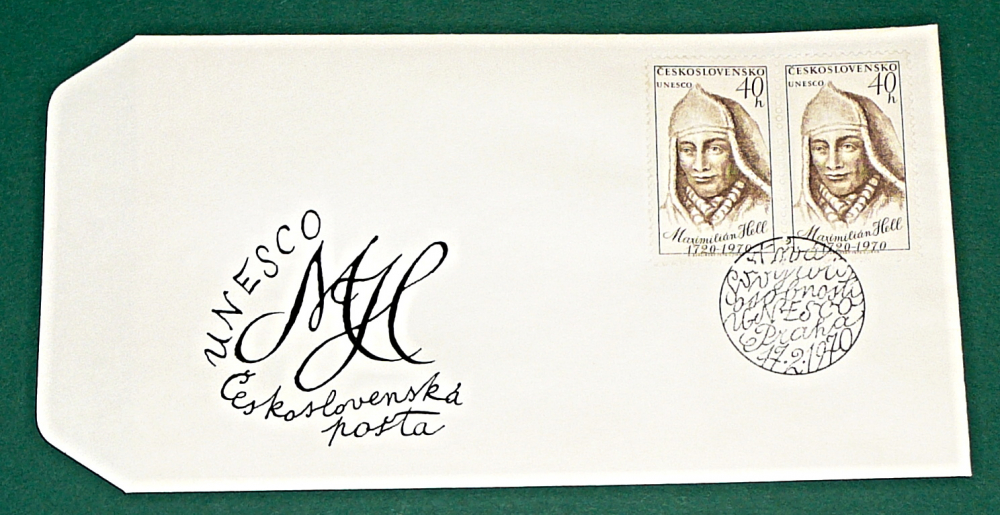 ČESKOSLOVENSKO
UNESCO 40h
Maximilián Hell
1720-1970
ČESKOSLOVENSKO
UNESCO 40h
Maximilián Hell
1720-1970
UNESCO
MH
Československá
pošta
osobnosti
UNESCO
Praha
17.2.1970